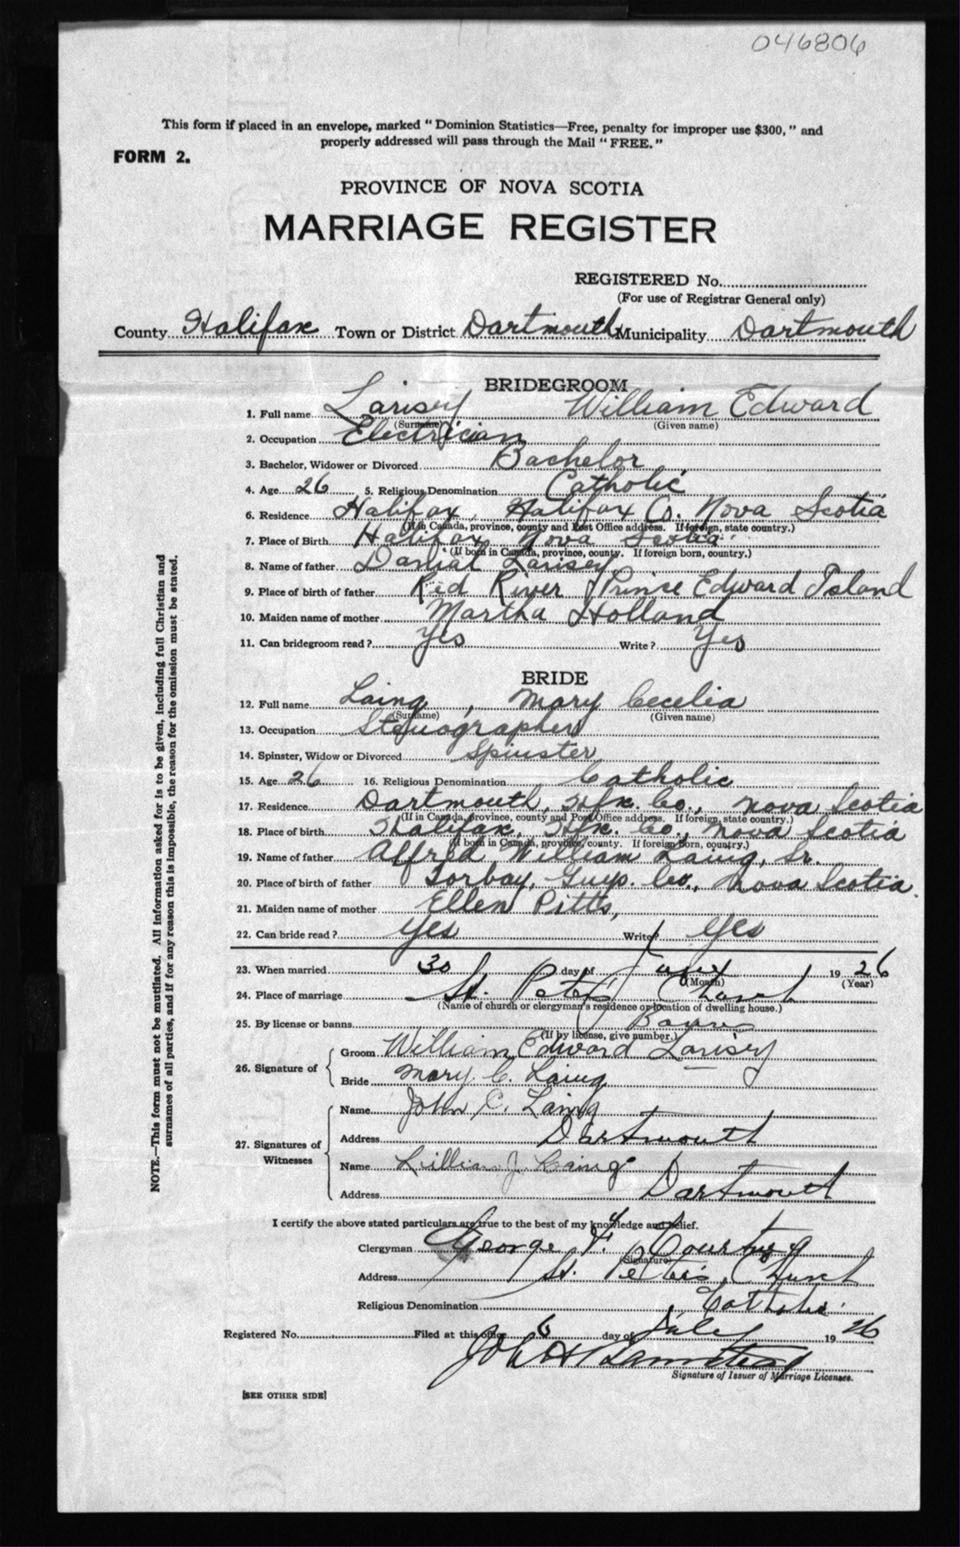 046806
This form if placed in an envelope, marked "Dominion Statistics—Free, penalty for improper use $300," and
properly addressed will pass through the Mail "FREE."
FORM 2.
PROVINCE OF NOVA SCOTIA
MARRIAGE REGISTER
REGISTERED No.
(For use of Registrar General only)
County Halifax Town or District Dartmouth Municipality Dartmouth
BRIDEGROOM
1. Full name Larisey William Edward
(Surname) (Given name)
2. Occupation Electrician
3. Bachelor, Widower or Divorced Bachelor
4. Age 26 5. Religious Denomination Catholic
6. Residence Halifax, Halifax Co. Nova Scotia
(If in Canada, province, county and Post Office address. If foreign, state country.)
7. Place of Birth Halifax Nova Scotia
(If born in Canada, province, county. If foreign born, country.)
8. Name of father Larisey
9. Place of birth of father Red River Prince Edward Island
10. Maiden name of mother Martha Holland
11. Can bridegroom read? Yes Write? Yes
BRIDE
12. Full name Laing, Mary Cecelia
(Surname) (Given name)
13. Occupation Stenographer
14. Spinster, Widow or Divorced Spinster
15. Age 26 16. Religious Denomination Catholic
17. Residence Dartmouth, Hfx. Co., Nova Scotia
(If in Canada, province, county and Post Office address. If foreign, state country.)
18. Place of birth Halifax, Hfx. Co., Nova Scotia
(If born in Canada, province, county. If foreign born, country.)
19. Name of father Alfred William Laing, Sr.
20. Place of birth of father Torbay, Guys. Co., Nova Scotia.
21. Maiden name of mother Ellen Pitts,
22. Can bride read? Yes Write? Yes
23. When married 30 day of June 19 26
(Month) (Year)
24. Place of marriage St. Peter's Church
(Name of church or clergyman's residence or location of dwelling house.)
25. By license or banns Banns
(If by license, give number.)
26. Signature of
Groom William Edward Larisey
Bride Mary C. Laing
27. Signatures of Witnesses
Name John C. Laing
Address Dartmouth
Name Lillian J. Laing
Address Dartmouth
I certify the above stated particulars are true to the best of my knowledge and belief.
Clergyman George F. Courtney
(Signature)
Address St. Peter's Church
Religious Denomination Catholic.
Registered No. Filed at this office 6 day of July 19 26
Signature of Issuer of Marriage Licenses.
[SEE OTHER SIDE]
NOTE.—This form must not be mutilated. All information asked for is to be given, including full Christian and
surnames of all parties, and if for any reason this is impossible, the reason for the omission must be stated.